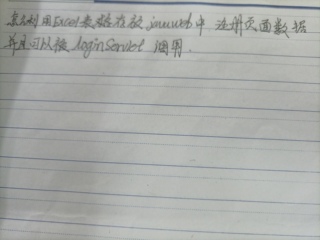 利用Excel表格存放javaweb中 注册页面数据
并且可以被 loginServlet 调用.